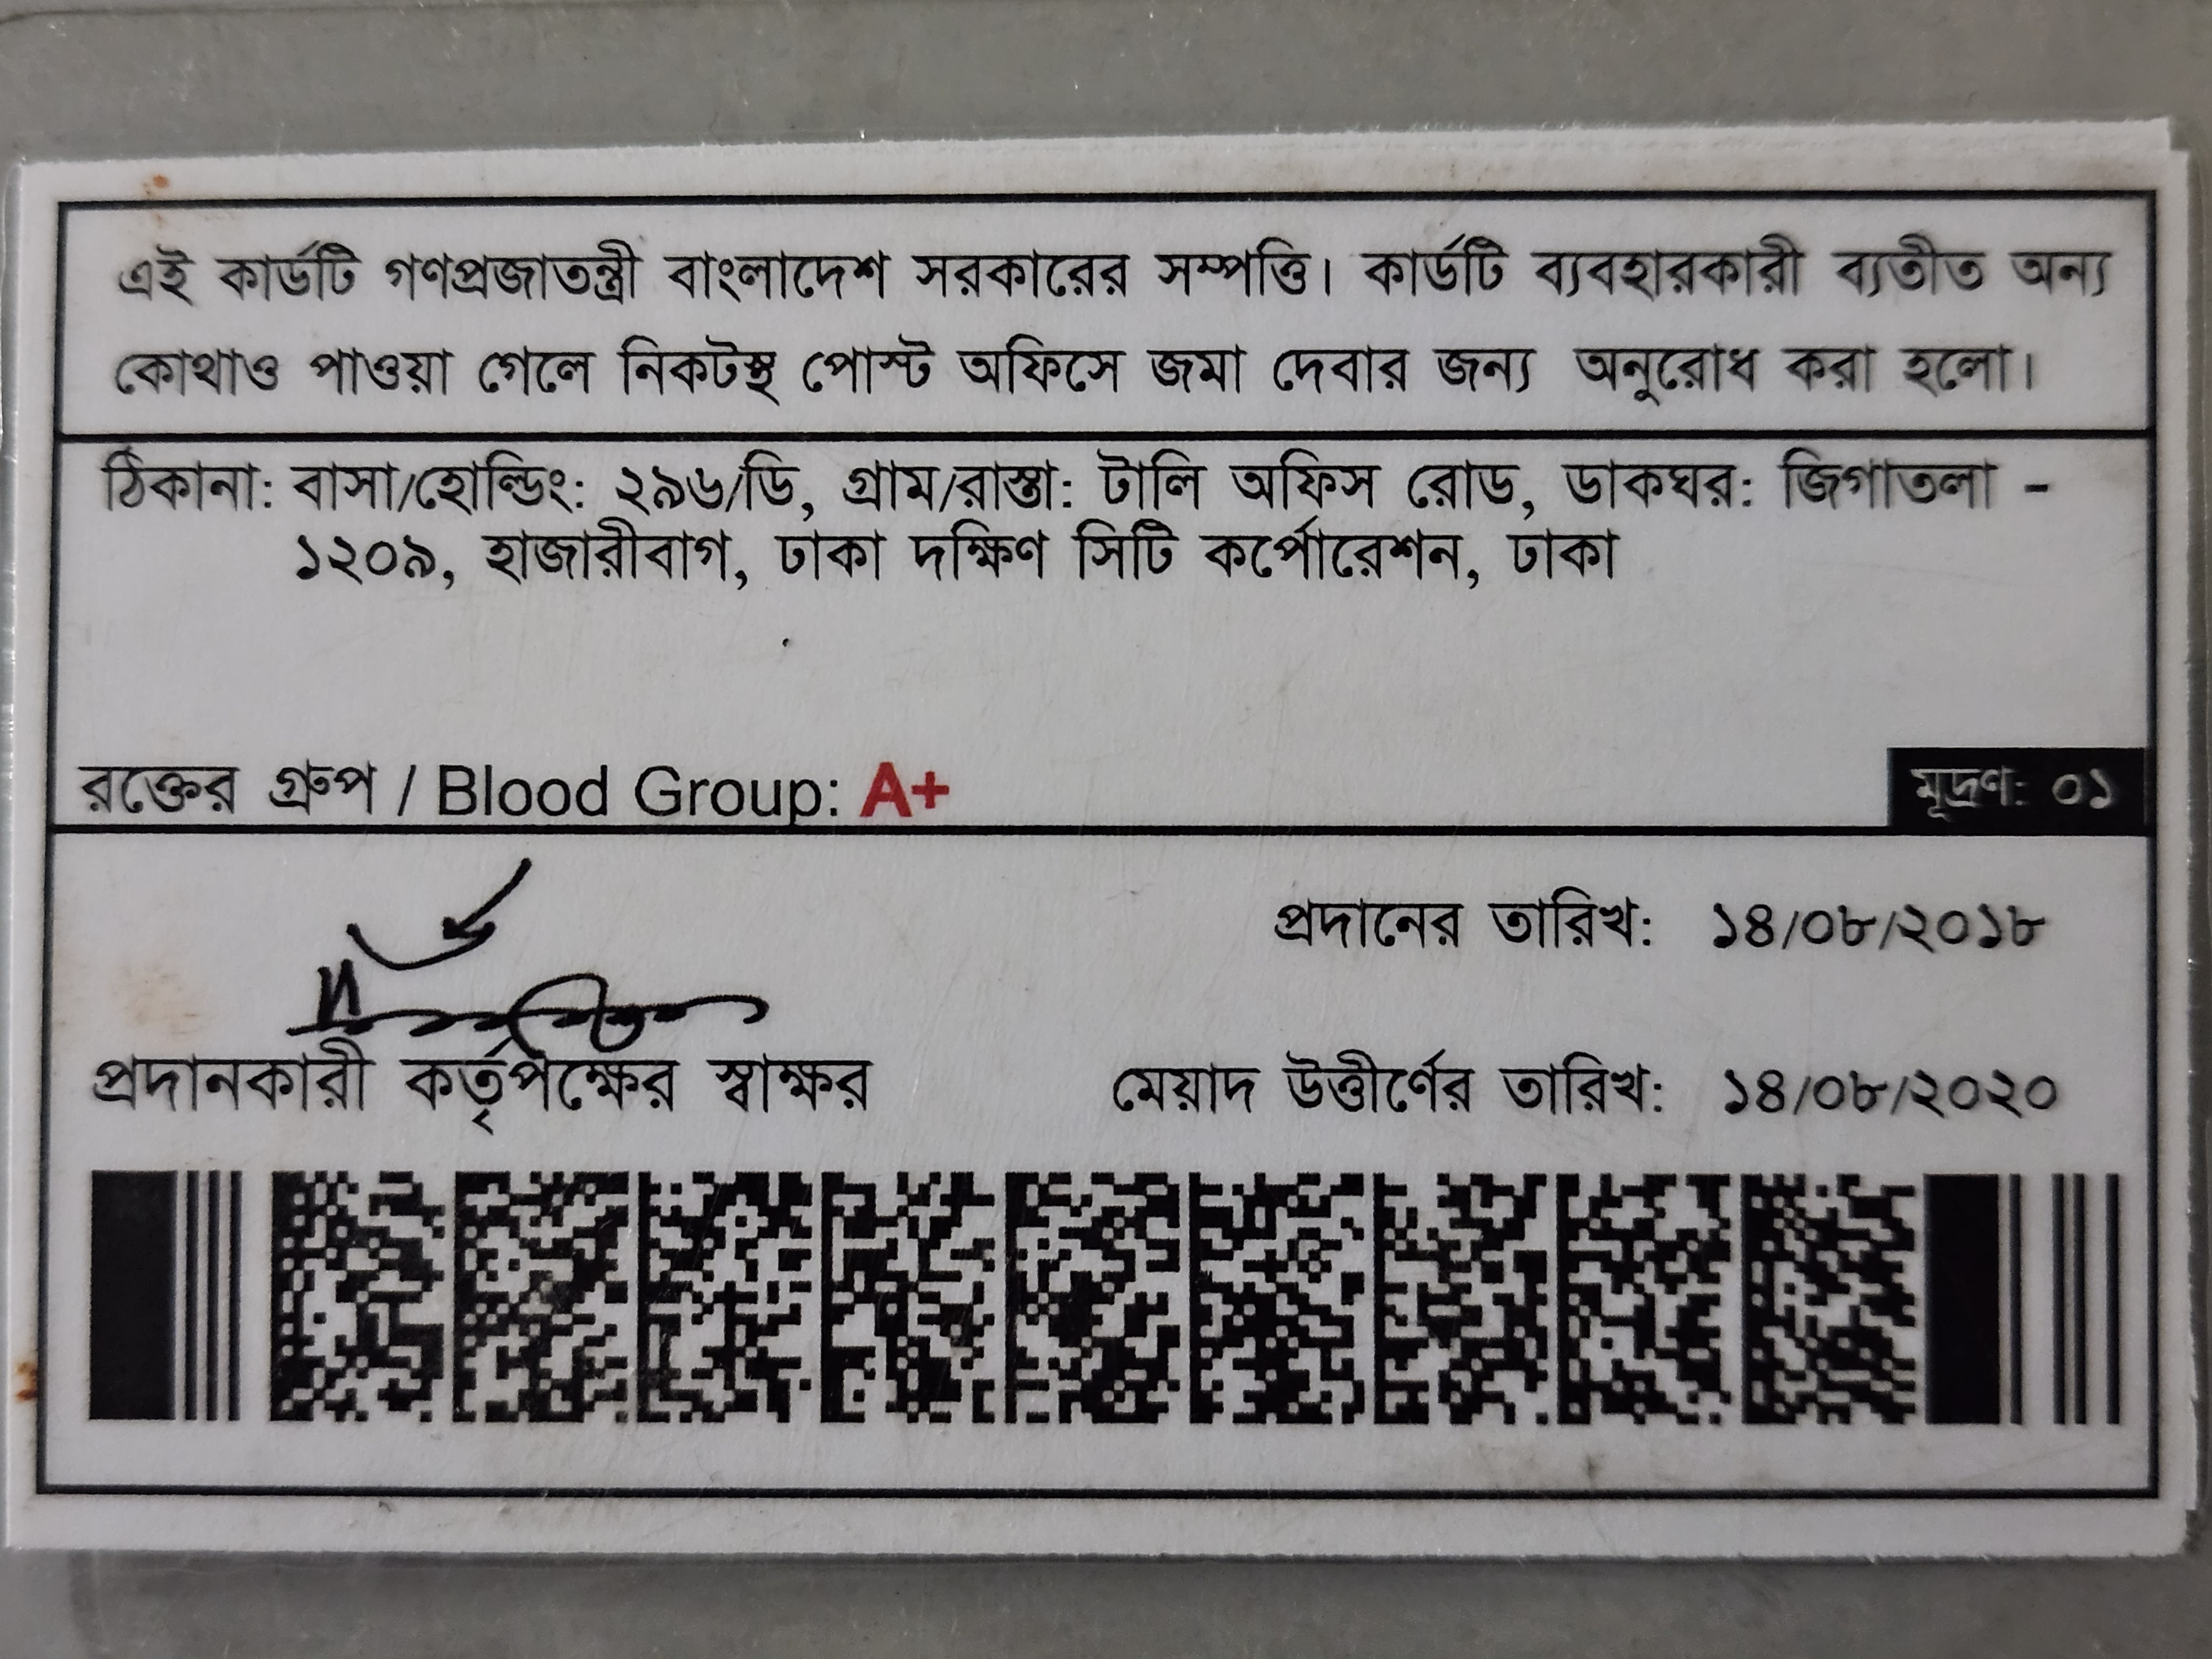 এই কার্ডটি গণপ্রজাতন্ত্রী বাংলাদেশ সরকারের সম্পত্তি। কার্ডটি ব্যবহারকারী ব্যতীত অন্য
কোথাও পাওয়া গেলে নিকটস্থ পোস্ট অফিসে জমা দেবার জন্য অনুরোধ করা হলো।
ঠিকানা: বাসা/হোল্ডিং: ২৯৬/ডি, গ্রাম/রাস্তা: টালি অফিস রোড, ডাকঘর: জিগাতলা -
১২০৯, হাজারীবাগ, ঢাকা দক্ষিণ সিটি কর্পোরেশন, ঢাকা
রক্তের গ্রুপ / Blood Group: A+
মূদ্রণ: ০১
প্রদানের তারিখ: ১৪/০৮/২০১৮
প্রদানকারী কর্তৃপক্ষের স্বাক্ষর
মেয়াদ উত্তীর্ণের তারিখ: ১৪/০৮/২০২০